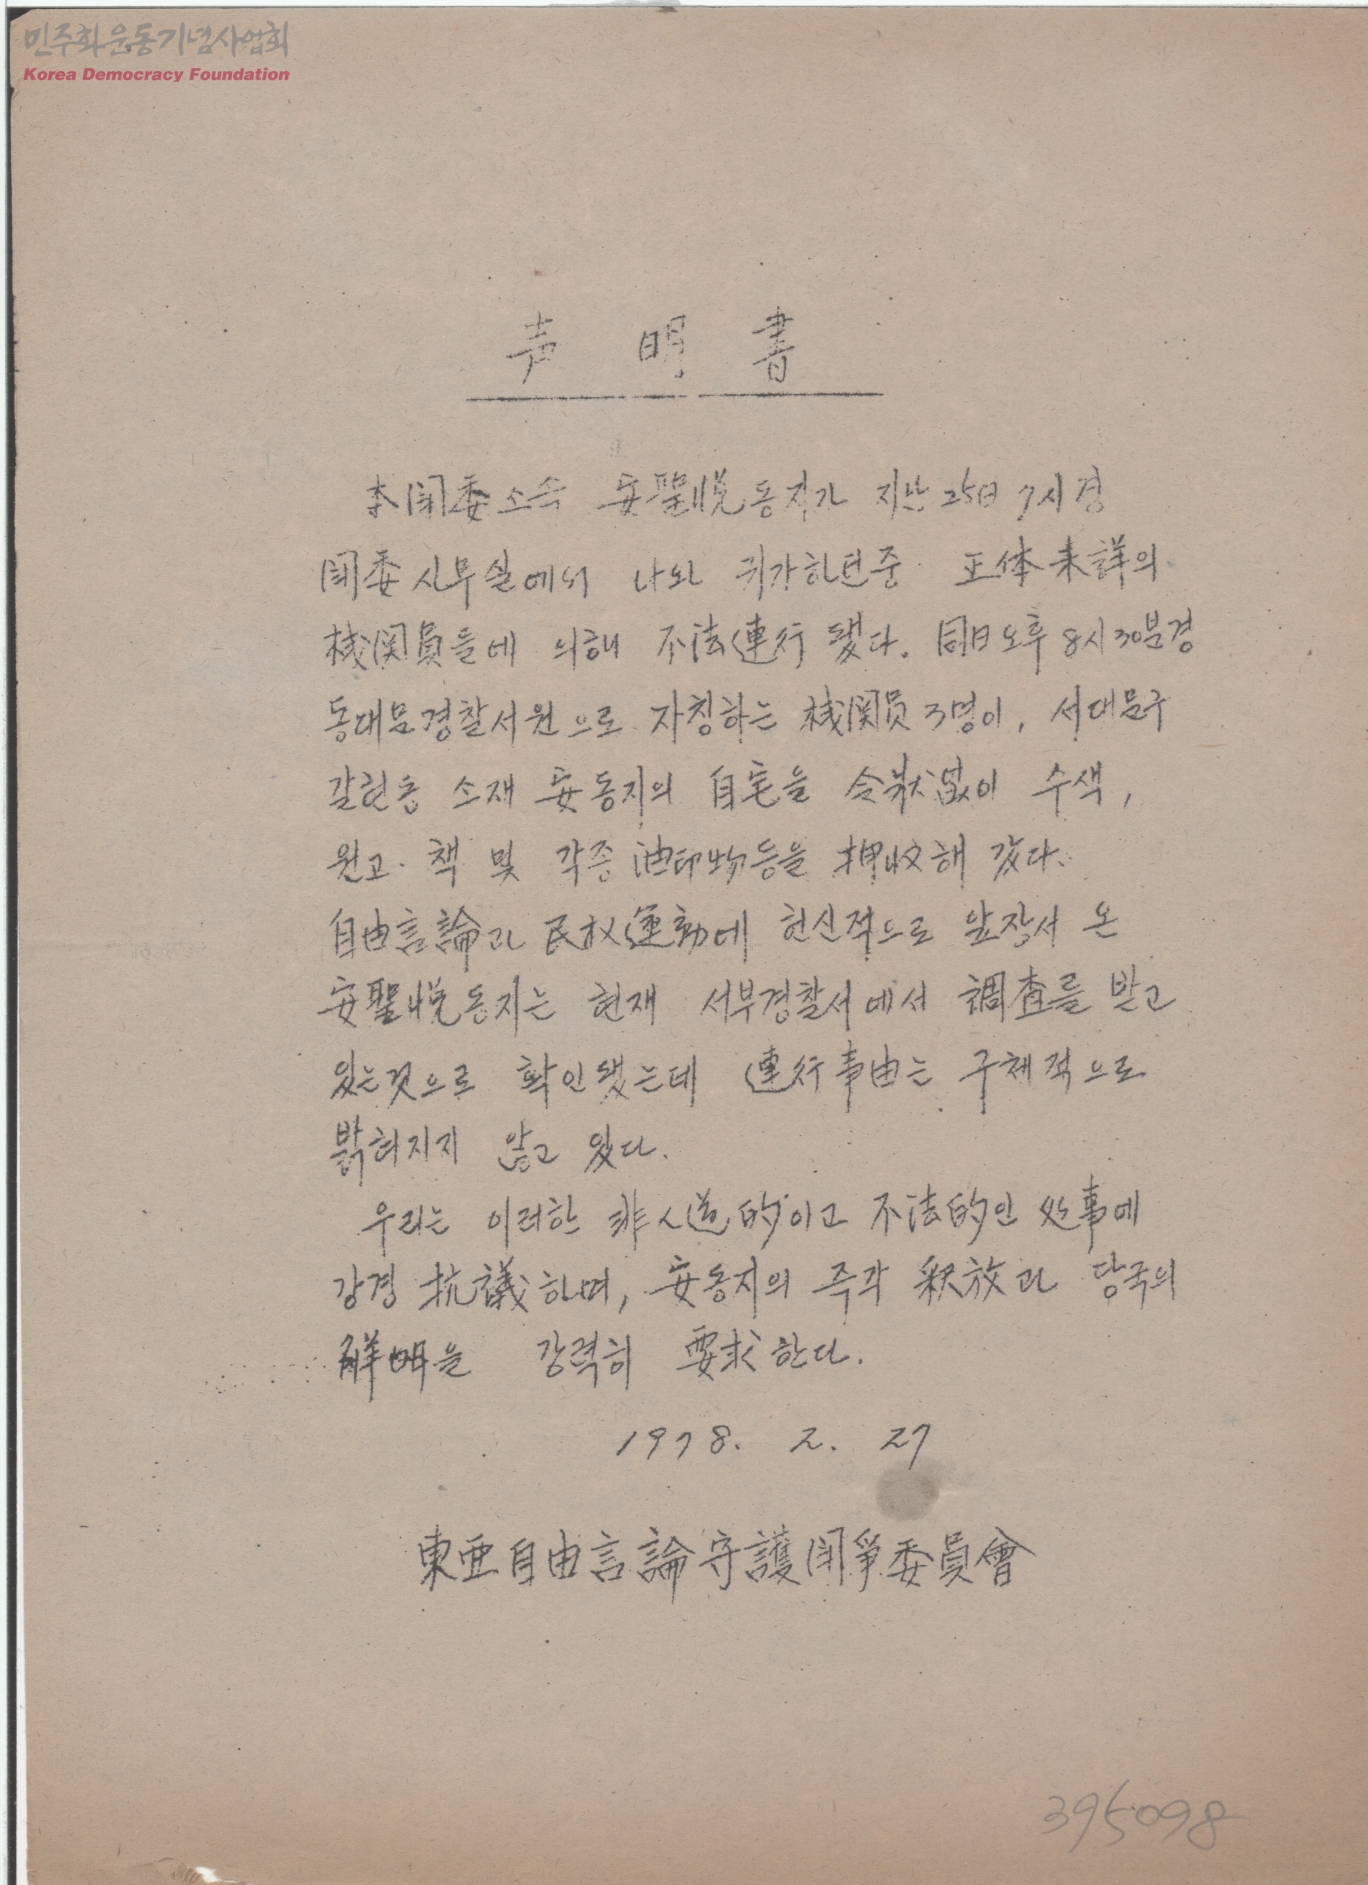 민주화운동기념사업회
Korea Democracy Foundation
声 明 書
本闘委소속 安聖悅동지가 지난 25日 7시경
闘委사무실에서 나와 귀가하던중 正体未詳의
機関員들에 의해 不法連行 됐다. 同日오후 8시 30분경
동대문경찰서원으로 자칭하는 機関员 3명이, 서대문구
갈현동 소재 安동지의 自宅을 令狀없이 수색,
원고· 책 및 각종 油印物등을 押收해 갔다.
自由言論과 民权運動에 헌신적으로 앞장서 온
安聖悅동지는 현재 서부경찰서에서 調査를 받고
있는것으로 확인됐는데 連行事由는 구체적으로
밝혀지지 않고 있다.
우리는 이러한 非人道的이고 不法的인 処事에
강경 抗議하며, 安동지의 즉각 釈放과 당국의
解明을 강력히 要求한다.
1978. 2. 27
東亜自由言論守護闘爭委員會
395098